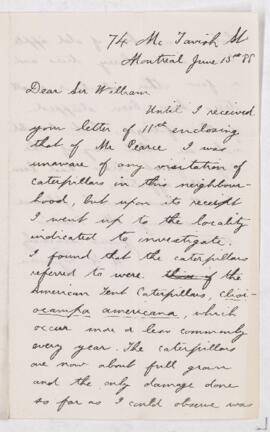 74 Mc Tavish St
Montreal June 15th 88
Dear Sir William
Until I received
your letter of 11th enclosing
that of Mr Pearce I was
unaware of any visitation of
caterpillars in this neighbour-
hood, but upon its receipt
I went up to the locality
indicated to investigate.
I found that the caterpillars
referred to were of the
American Tent Caterpillars, clisio-
campa americana, which
occur more or less commonly
every year. The caterpillars
are now about full grown
and the only damage done
so far as I could observe was